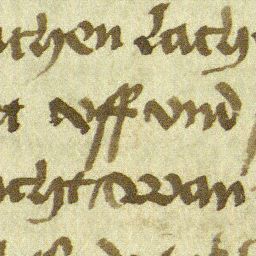 chen Lach
t vff vnd
cht wan